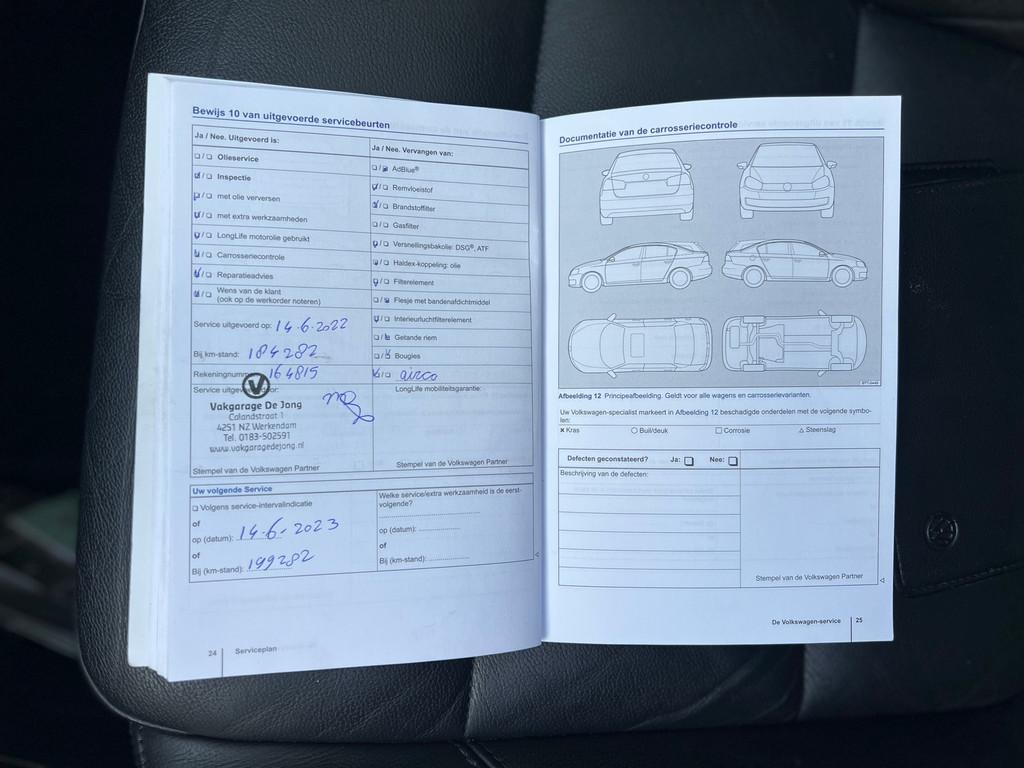 Bewijs 10 van uitgevoerde servicebeurten
Ja / Nee. Uitgevoerd is:
❑ / ❑ Olieservice
☑ / ❑ Inspectie
☑ / ❑ met olie verversen
☑ / ❑ met extra werkzaamheden
☑ / ❑ LongLife motorolie gebruikt
☑ / ❑ Carrosseriecontrole
☑ / ❑ Reparatieadvies
☑ / ❑ Wens van de klant
(ook op de werkorder noteren)
Service uitgevoerd op: 14-6-2022
Bij km-stand: 184282
Rekeningnummer 164815
Service uitgevoerd door:
Vakgarage De Jong
Calandstraat 1
4251 NZ Werkendam
Tel. 0183-502591
www.vakgaragedejong.nl
Stempel van de Volkswagen Partner
Ja / Nee. Vervangen van:
❑ / ☑ AdBlue®
☑ / ❑ Remvloeistof
☑ / ❑ Brandstoffilter
❑ / ❑ Gasfilter
☑ / ❑ Versnellingsbakolie: DSG®, ATF
☑ / ❑ Haldex-koppeling: olie
☑ / ❑ Filterelement
❑ / ☑ Flesje met bandenafdichtmiddel
☑ / ❑ Interieurluchtfilterelement
❑ / ☑ Getande riem
❑ / ☑ Bougies
☑ / ❑ airco
LongLife mobiliteitsgarantie:
Stempel van de Volkswagen Partner
Uw volgende Service
❑ Volgens service-intervalindicatie
of
op (datum): 14-6-2023
of
Bij (km-stand): 199282
Welke service/extra werkzaamheid is de eerst-
volgende?
op (datum):
of
Bij (km-stand):
24 Serviceplan
Documentatie van de carrosseriecontrole
Afbeelding 12 Principeafbeelding. Geldt voor alle wagens en carrosserievarianten.
Uw Volkswagen-specialist markeert in Afbeelding 12 beschadigde onderdelen met de volgende symbo-
len:
× Kras ○ Buil/deuk □ Corrosie △ Steenslag
Defecten geconstateerd? Ja: ❑ Nee: ❑
Beschrijving van de defecten:
Stempel van de Volkswagen Partner
De Volkswagen-service 25